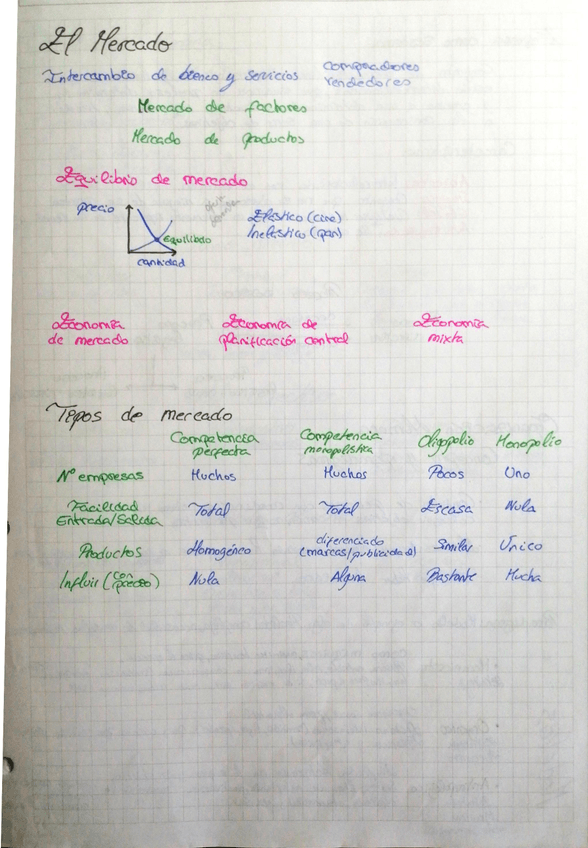 El Mercado
Intercambio de bienes y servicios compradores
vendedores
Mercado de factores
Mercado de productos
Equilibrio de mercado
precio
Elástico (cine)
Inelástico (pan)
Equilibrio
cantidad
Economía Economía de Economía
de mercado planificación central mixta
Tipos de mercado
Competencia perfecta Competencia monopolística Oligopolio Monopolio
Nº empresas Muchos Muchos Pocos Uno
Facilidad
Entrada/Salida Total Total Escasa Nula
Productos Homogéneo diferenciado (marcas/publicidad) Similar Único
Influir (con precio) Nula Alguna Bastante Mucha